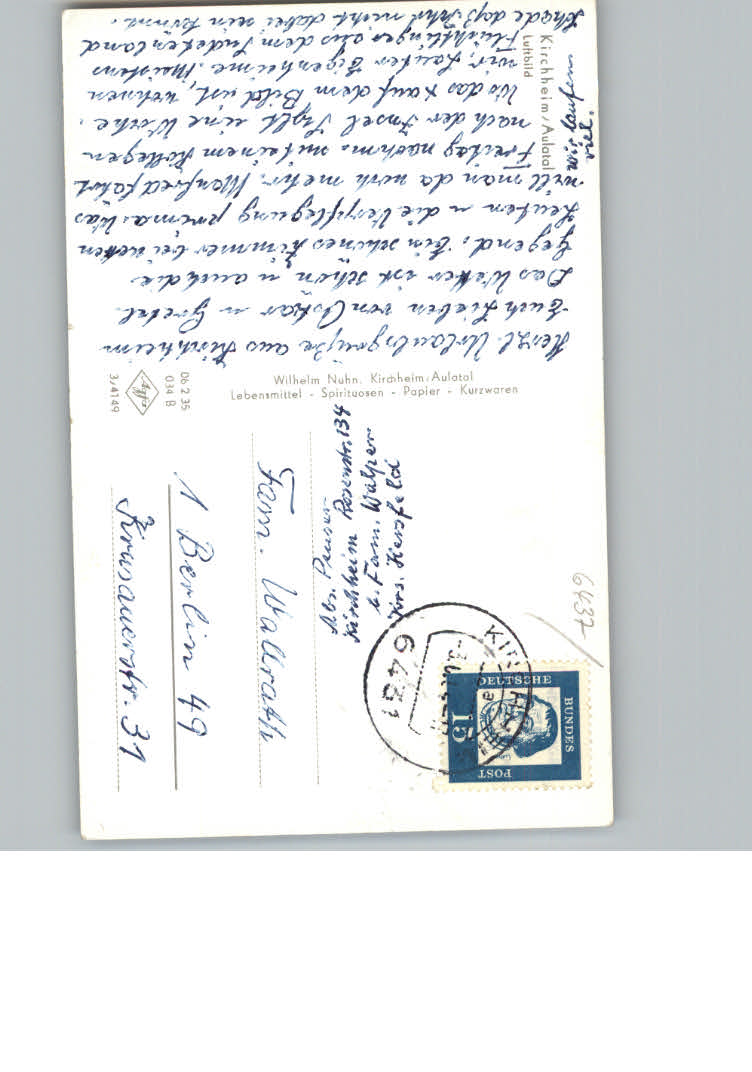 Herzl. Urlaubsgrüße aus Kirchheim
Euch Lieben von Oskar u Gretel.
Das Wetter ist schön u auch die
Gegend. Ein schönes Zimmer bei netten
Leuten u die Verpflegung prima. Was
will man da noch mehr. Manfred fährt
Freitag nachm. mit einem Kollegen
nach der Insel Sylt eine Woche.
Wo das x auf dem Bild ist, wohnen
wir. Lauter Eigenheime. Meistens
Flüchtlinge aus dem Sudetenland
Schade daß Ihr nicht dabei sein könnt.
wir laufen
viel.
Kirchheim/Aulatal
Luftbild
Wilhelm Nuhn, Kirchheim/Aulatal
Lebensmittel - Spirituosen - Papier - Kurzwaren
Agfa
06 2 35
034 B
3/4149
Abs. Preuser
Kirchheim Rosenstr. 134
b. Fam. Walper
Krs. Hersfeld
Fam. Wallrath
1 Berlin 49
Krusauerstr. 31
6437
6431
KIR
DEUTSCHE
BUNDES
POST
15